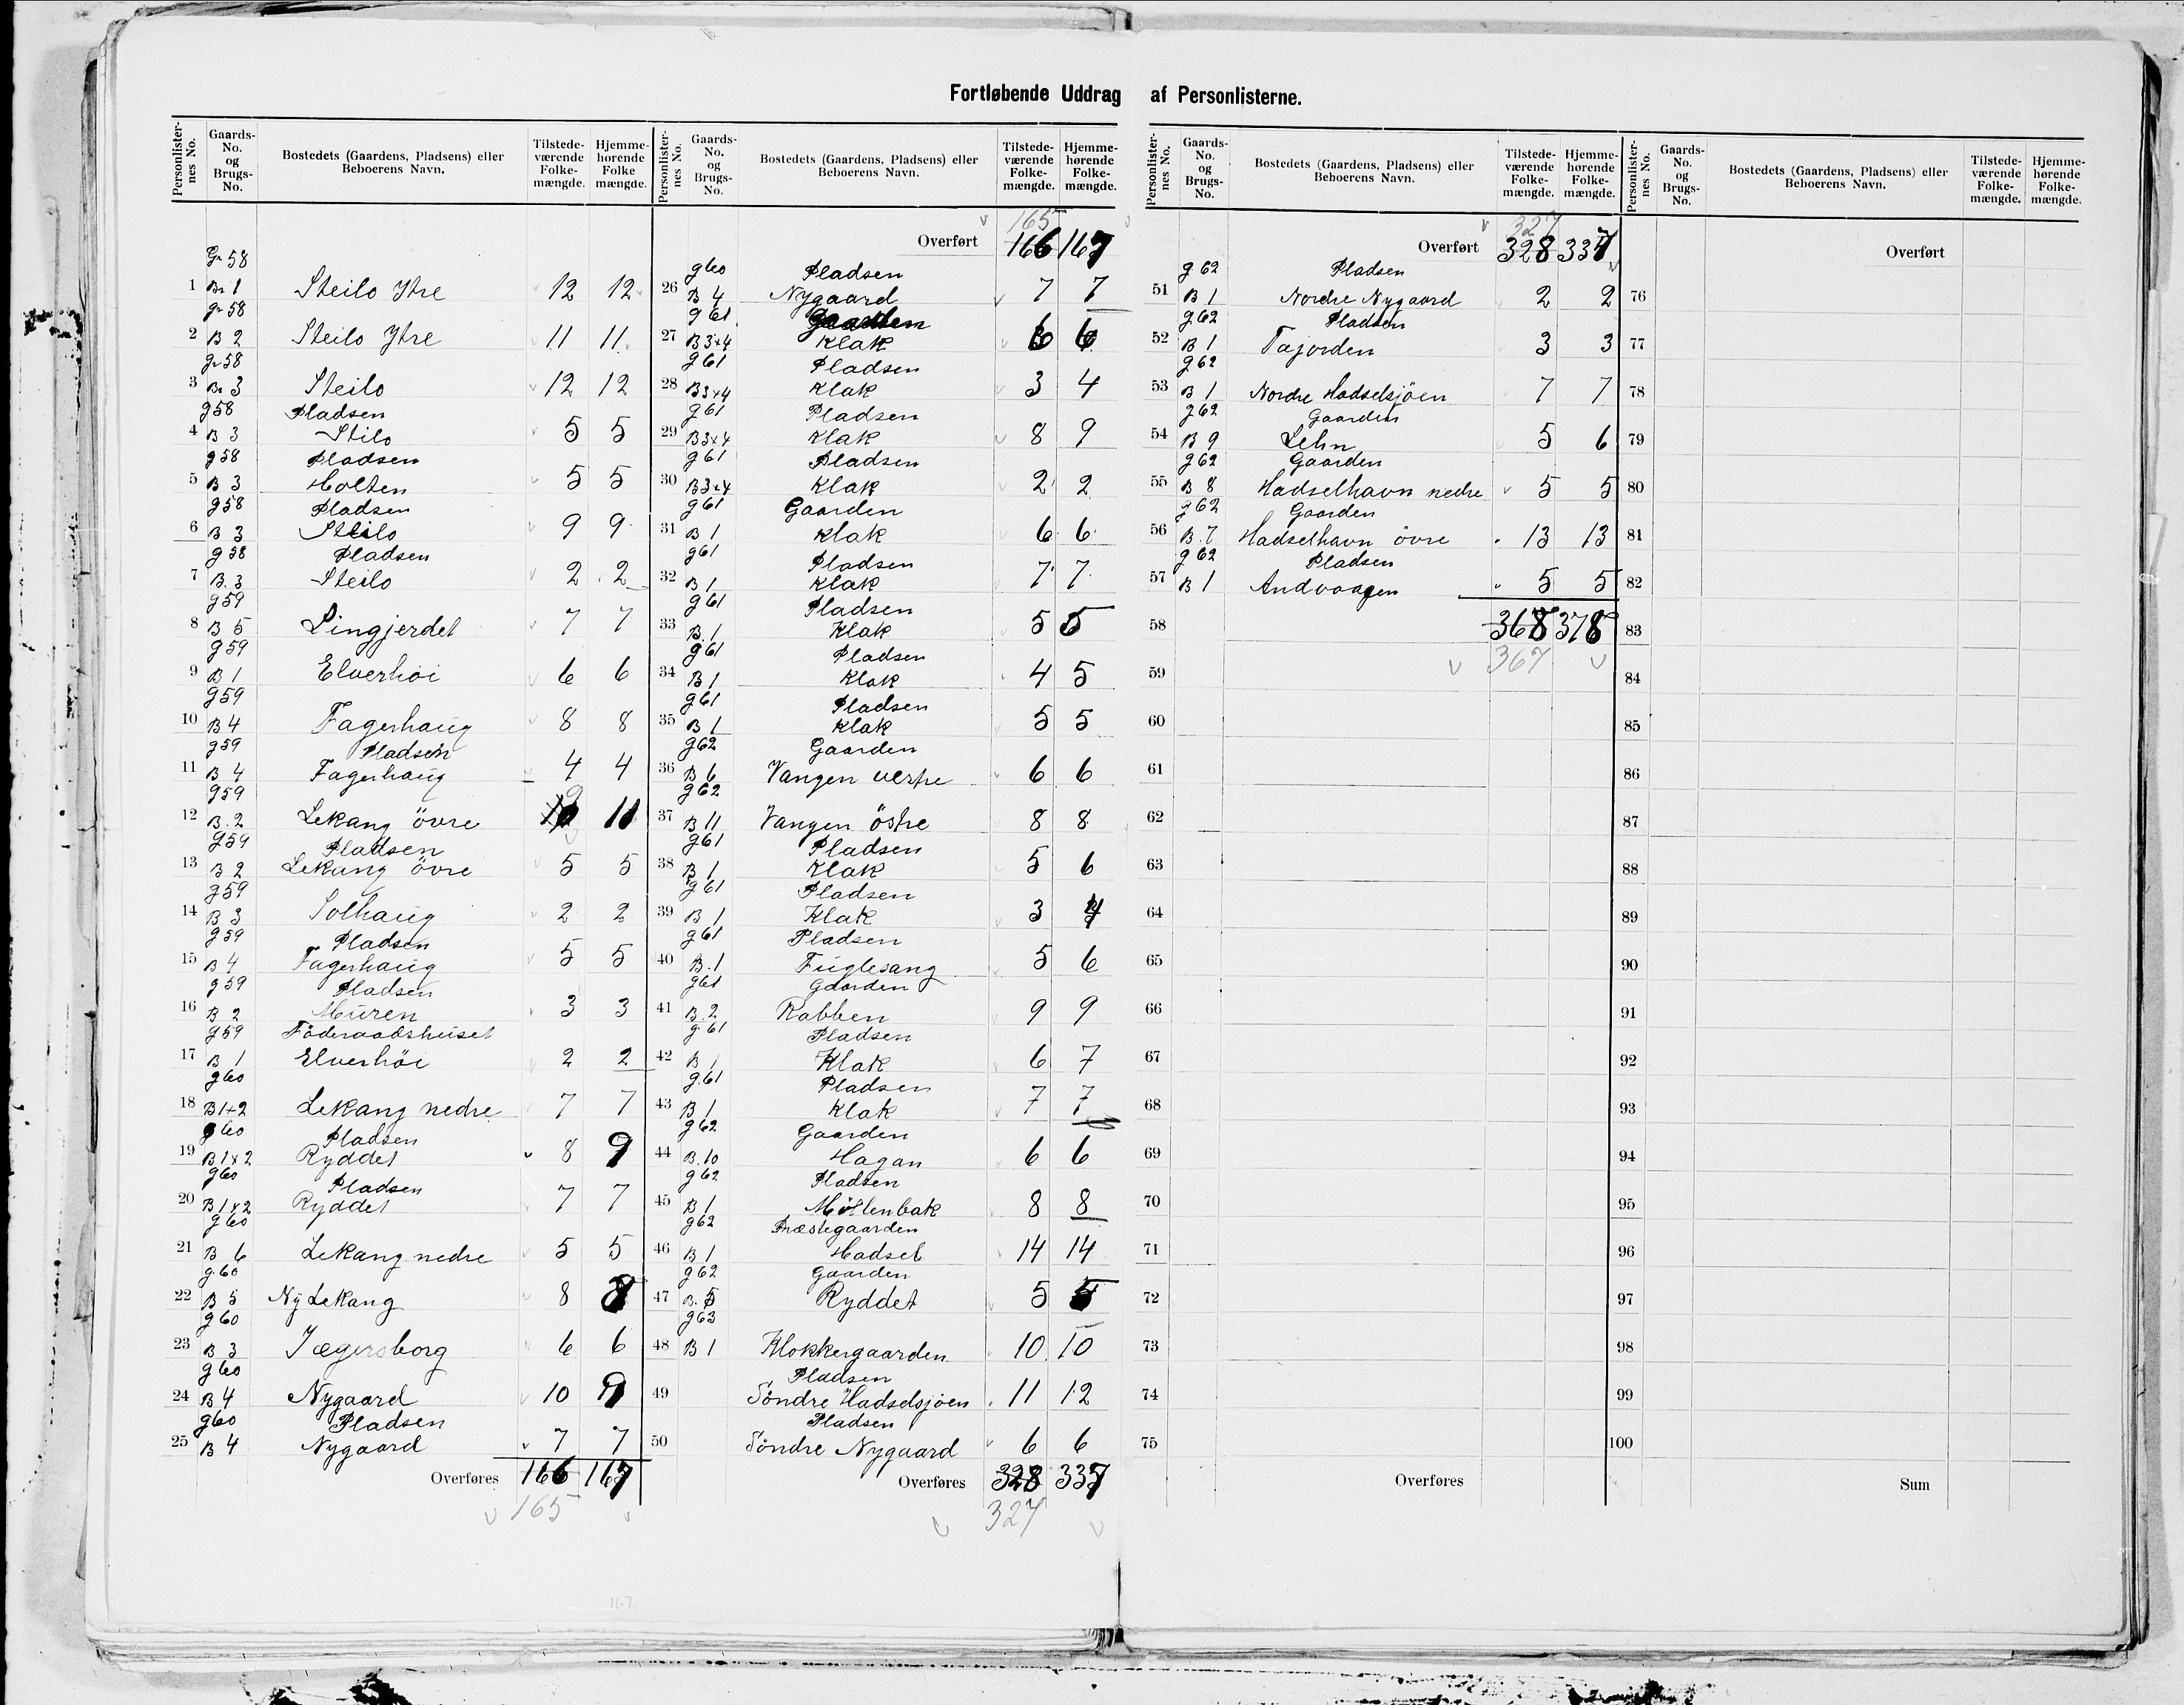 Fortløbende Uddrag af Personlisterne.
Personlisternes No. Gaards-No. og Brugs-No. Bostedets (Gaardens, Pladsens) eller Beboerens Navn. Tilstedeværende Folkemængde. Hjemmehørende Folkemængde.
Gr 58
1 Br 1 Steilo Ytre 12 12
gr 58
2 B 2 Steilo Ytre 11 11
gr 58
3 Br 3 Steilo 12 12
g 58 Pladsen
4 B 3 Stilo 5 5
g 58 Pladsen
5 B 3 Holten 5 5
g 58 Pladsen
6 B 3 Steilo 9 9
g 58 Pladsen
7 B. 3 Steilo 2 2
g 59
8 B 5 Lingjerdet 7 7
g 59
9 B 1 Elverhöi 6 6
g 59
10 B 4 Fagerhaug 8 8
g 59 Pladsen
11 B 4 Fagerhaug 4 4
g 59 9
12 B. 2 Lekang övre 10 10
g 59 Pladsen
13 B 2 Lekang övre 5 5
g 59
14 B 3 Solhaug 2 2
g 59 Pladsen
15 B 4 Fagerhaug 5 5
g 59 Pladsen
16 B 2 Muren 3 3
g 59 Föderaadshuset
17 B 1 Elverhöi 2 2
g 60
18 B 1+2 Lekang nedre 7 7
g 60 Pladsen
19 B 1x2 Ryddet 8 9
g 60 Pladsen
20 B 1x2 Ryddet 7 7
g 60
21 B 6 Lekang nedre 5 5
g 60
22 B 5 Ny Lekang 8 8
g 60
23 B 3 Jægersborg 6 6
g 60
24 B 4 Nygaard 10 9
g 60 Pladsen
25 B 4 Nygaard 7 7
Overføres 166 167
165
165
Overført 166 167
g 60 Pladsen
26 B 4 Nygaard 7 7
g 61 Gaarden
27 B 3x4 Klak 6 6
g 61 Pladsen
28 B 3x4 Klak 3 4
g 61 Pladsen
29 B 3x4 Klak 8 9
g 61 Pladsen
30 B 3x4 Klak 2 2
g 61 Gaarden
31 B 1 Klak 6 6
g 61 Pladsen
32 B 1 Klak 7 7
g 61 Pladsen
33 B. 1 Klak 5 5
g 61 Pladsen
34 B 1 Klak 4 5
g 61 Pladsen
35 B 1 Klak 5 5
g 62 Gaarden
36 B 6 Vangen vestre 6 6
g 62
37 B 11 Vangen östre 8 8
g 61 Pladsen
38 B 1 Klak 5 6
g 61 Pladsen
39 B 1 Klak 3 4
g 61 Pladsen
40 B. 1 Fuglesang 5 6
g 61 Gaarden
41 B. 2 Rabben 9 9
g 61 Pladsen
42 B 1 Klak 6 7
g. 61 Pladsen
43 B 1 Klak 7 7
g 62 Gaarden
44 B. 10 Hagan 6 6
g 62 Pladsen
45 B 1 Möllenbak 8 8
g 62 Præstegaarden
46 B 1 Hadsel 14 14
g 62 Gaarden
47 B. 5 Ryddet 5 5
g 63
48 B 1 Klokkergaarden 10 10
Pladsen
49 Söndre Hadselsjöen 11 12
Pladsen
50 Söndre Nygaard 6 6
Overføres 328 337
327
Personlisternes No. Gaards-No. og Brugs-No. Bostedets (Gaardens, Pladsens) eller Beboerens Navn. Tilstedeværende Folkemængde. Hjemmehørende Folkemængde.
327
Overført 328 337
g 62 Pladsen
51 B 1 Nordre Nygaard 2 2
g. 62 Pladsen
52 B 1 Tajorden 3 3
g 62
53 B 1 Nordre Hadselsjöen 7 7
g 62 Gaarden
54 B 9 Lehn 5 6
g 62 Gaarden
55 B 8 Hadselhavn nedre 5 5
g 62 Gaarden
56 B. 7 Hadselhavn övre 13 13
g 62 Pladsen
57 B 1 Andvaagen 5 5
58 368 378
367
59
60
61
62
63
64
65
66
67
68
69
70
71
72
73
74
75
Overføres
Overført
76
77
78
79
80
81
82
83
84
85
86
87
88
89
90
91
92
93
94
95
96
97
98
99
100
Sum